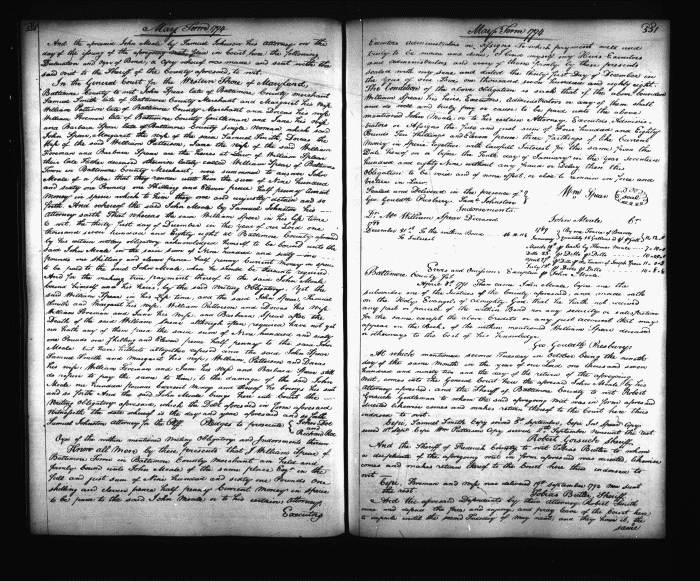 May Term 1794
And the aforesaid John Moale by Samuel Johnston his Attorney on the
day of the issuing of the aforegoing Writ in Court here the following
Declaration and Oyer of Bond, a Copy whereof was made and sent with the
said Writ to the Sheriff of the County aforesaid, to wit.
In the General Court for the Western Shore of Maryland,
Baltimore County to wit John Spear late of Baltimore County Merchant
Samuel Smith late of Baltimore County Merchant and Margaret his Wife
William Patterson late of Baltimore County Merchant and Dorcas his Wife
William Foreman late of Baltimore County Gentleman and Jane his Wife
and Barbara Spear late of Baltimore County Single Woman which said
John Spear, Margaret the Wife of the said Samuel Smith, Dorcas the
Wife of the said William Patterson, Jane the Wife of the said William
Foreman and Barbara Spear are the heirs at Law of William Spear
their late Father deceased otherwise lately called William Spear of Baltimore
Town in Baltimore County Merchant, were summoned to answer John
Moale of a plea that they render unto him the sum of Nine hundred
and sixty one Pounds one Shilling and Eleven pence half penny Current
Money in specie which to him they owe and unjustly detain and so
forth. And whereof the said John Moale by Samuel Johnston his
attorney saith That whereas the said William Spear in his life time
to wit the thirty first day of December in the year of our Lord one
thousand seven hundred and Eighty eight at Baltimore County aforesaid
by his certain writing obligatory acknowledged himself to be bound unto the
said John Moale in the said sum of Nine hundred and sixty one
Pounds one shilling and eleven pence half penny Current Money in specie
to be paid to the said John Moale when he should be thereunto required
And for the making true payment thereof to the said John Moale
bound himself and his Heirs, by the said Writing Obligatory. Yet the
said William Spear in his life time, and the said John Spear, Samuel
Smith and Margaret his Wife, William Patterson and Dorcas his Wife
William Foreman and Jane his Wife, and Barbara Spear after the
Death of the said William Spear although often required have not yet
nor hath any of them paid the said sum of Nine hundred and sixty
one Pounds one Shilling and Eleven pence half penny to the said John
Moale but them have altogether refused and the said John Spear
Samuel Smith and Margaret his Wife, William Patterson and Dorcas
his Wife, William Foreman and Jane his Wife and Barbara Spear still
do refuse to pay the same to him, to the damage of the said John
Moale one hundred pounds Current Money and thereof he brings his suit
and so forth And the said John Moale brings here into Court the
Writing Obligatory aforesaid which the Debt aforesaid in form aforesaid
Witnesseth the date whereof is the day and year aforesaid and so forth
Samuel Johnston attorney for the Plff Pledges to prosecute John Doe
and
Richard Roe
Oyer of the within mentioned Writing Obligatory and Indorsement thereon
Know all Men by these presents that I William Spear of
Baltimore Town in Baltimore County Merchant am held and
firmly bound unto John Moale of the same place Esqr in the
full and just sum of Nine hundred and sixty one Pounds One
shilling and eleven pence half penny Current Money in specie
to be paid to the said John Moale or to his certain Attorney
Executors
May Term 1794
331
Executors Administrators or Assigns To which payment well and
truly to be made and done, I bind myself my Heirs Executors
and Administrators and every of them firmly by these presents
sealed with my seal and dated the thirty first Day of December in
the year of our Lord one thousand seven hundred and eighty eight.
The Condition of the above obligation is such that if the above bounden
William Spear his heirs Executors, Administrators or any of them shall
and do well and truly pay or cause to be paid unto the above
mentioned John Moale or to his certain Attorney Executors Adminis-
trators or Assigns the full and just sum of Four hundred and Eighty
Pounds Ten Shillings and Eleven pence three farthings of like Current
Money in specie Together with lawful Interest for the same from the
Date hereof on or before the Tenth day of January in the year seventeen
hundred and eighty nine without any Fraud or Delay then this
Obligation to be void and of none effect, or else to remain in full force
and virtue in Law.
Sealed and Delivered in the presence of Wm Spear Seal
Geo Gouldh. Presbury Saml Johnston
Indorsements.
Dr Mr William Spear Deceased John Moale Cr
Errors and Omissions Excepted
Baltimore County Sct
April 8th 1791 Then came John Moale before me the
subscriber one of the Justices of the County aforesaid, and made oath
on the Holy Evangels of Almighty God that he hath not received
any part or parcel of the within Bond or any security or satisfaction
for the same except the above Credits or any just account that may
appear on the Books of the within mentioned William Spear deceased
or otherways to the best of his Knowledge
Geo Gouldh Presbury
At which mentioned second Tuesday in October being the ninth
day of the same Month in the year of our Lord one thousand seven
hundred and ninety two and the day of the return of the aforegoing
Writ, comes into the General Court here the aforesaid John Moale by his
Attorney aforesaid, and the Sheriff of Baltimore County to wit Robert
Gorsuch Gentleman to whom the said aforegoing Writ was in form aforesaid
directed likewise comes and makes return thereof to the Court here thus
endorsed to wit.
Robert Gorsuch Sheriff
And the Sheriff of Frederick County to wit Tobias Butler to whom
a duplicate of the aforegoing Writ in form aforesaid was directed, likewise
comes and makes return thereof to the Court here thus endorsed to
wit
Cepi Foreman and Wife, was delivered 19th September 1792 non sunt
the rest
Tobias Butler Sheriff
And the aforesaid Defendants by their Attorney Robert Smith
come and defend the force and injury, and pray leave of the Court here
to imparle until the second Tuesday of May next and they have it, the
same